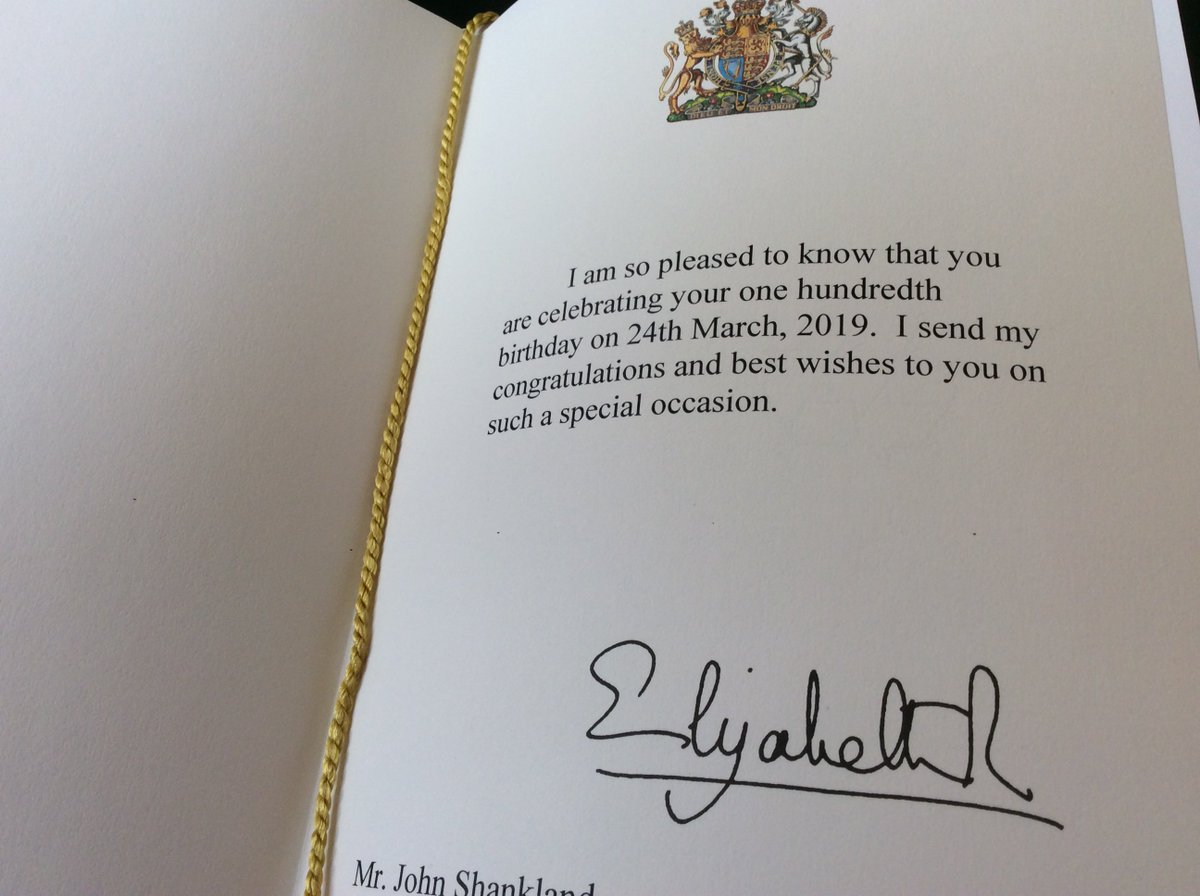 DIEU ET MON DROIT
I am so pleased to know that you
are celebrating your one hundredth
birthday on 24th March, 2019.  I send my
congratulations and best wishes to you on
such a special occasion.
Elizabeth R
Mr. John Shankland